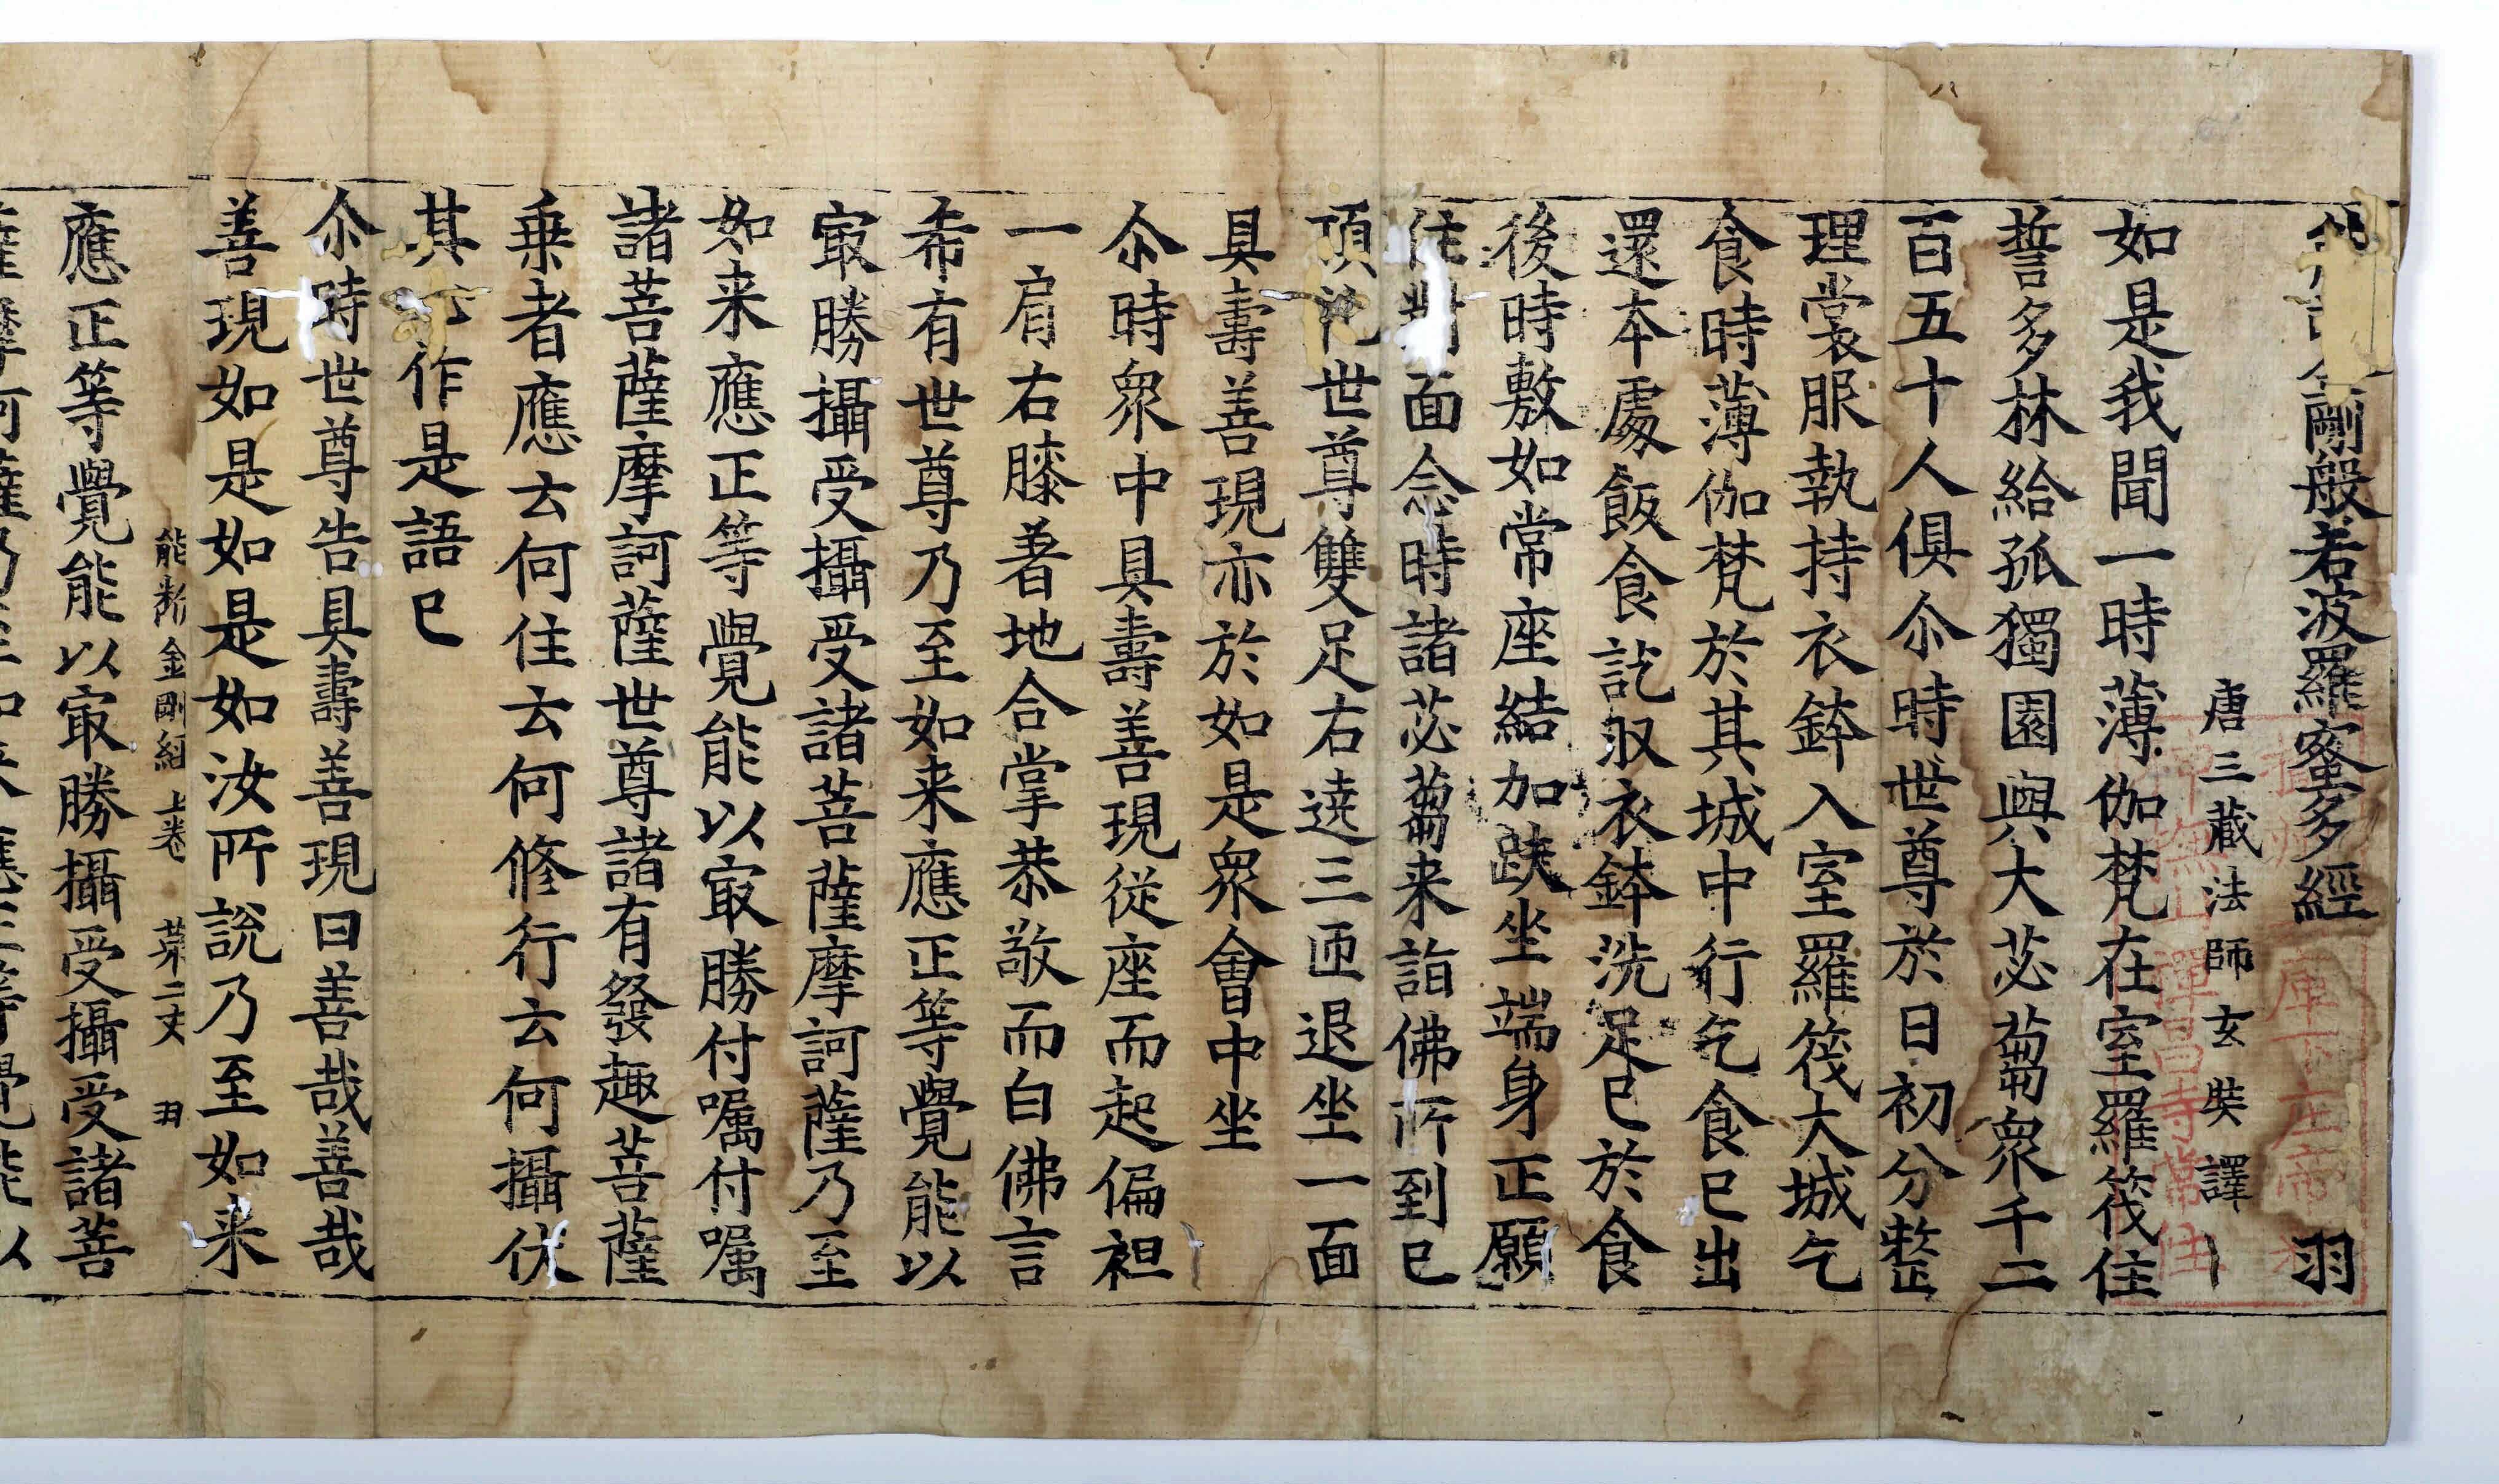 能斷金剛般若波羅蜜多經 羽
唐三藏法師玄奘譯
如是我聞一時薄伽梵在室羅筏住
誓多林給孤獨園與大苾蒭衆千二
百五十人俱尒時世尊於日初分整
理裳服執持衣鉢入室羅筏大城乞
食時薄伽梵於其城中行乞食已出
還本處飯食訖収衣鉢洗足已於食
後時敷如常座結加趺坐端身正願
住對面念時諸苾蒭来詣佛所到已
頂礼世尊雙足右遶三匝退坐一面
具壽善現亦於如是衆會中坐
尒時衆中具壽善現從座而起偏袒
一肩右膝著地合掌恭敬而白佛言
希有世尊乃至如来應正等覺能以
㝡勝攝受攝受諸菩薩摩訶薩乃至
如来應正等覺能以㝡勝付嘱付嘱
諸菩薩摩訶薩世尊諸有發趣菩薩
乗者應云何住云何修行云何攝伏
其心作是語已
尒時世尊告具壽善現曰善哉善哉
善現如是如是如汝所說乃至如来
能断金剛經上卷 苐二丈 羽
應正等覺能以㝡勝攝受攝受諸菩